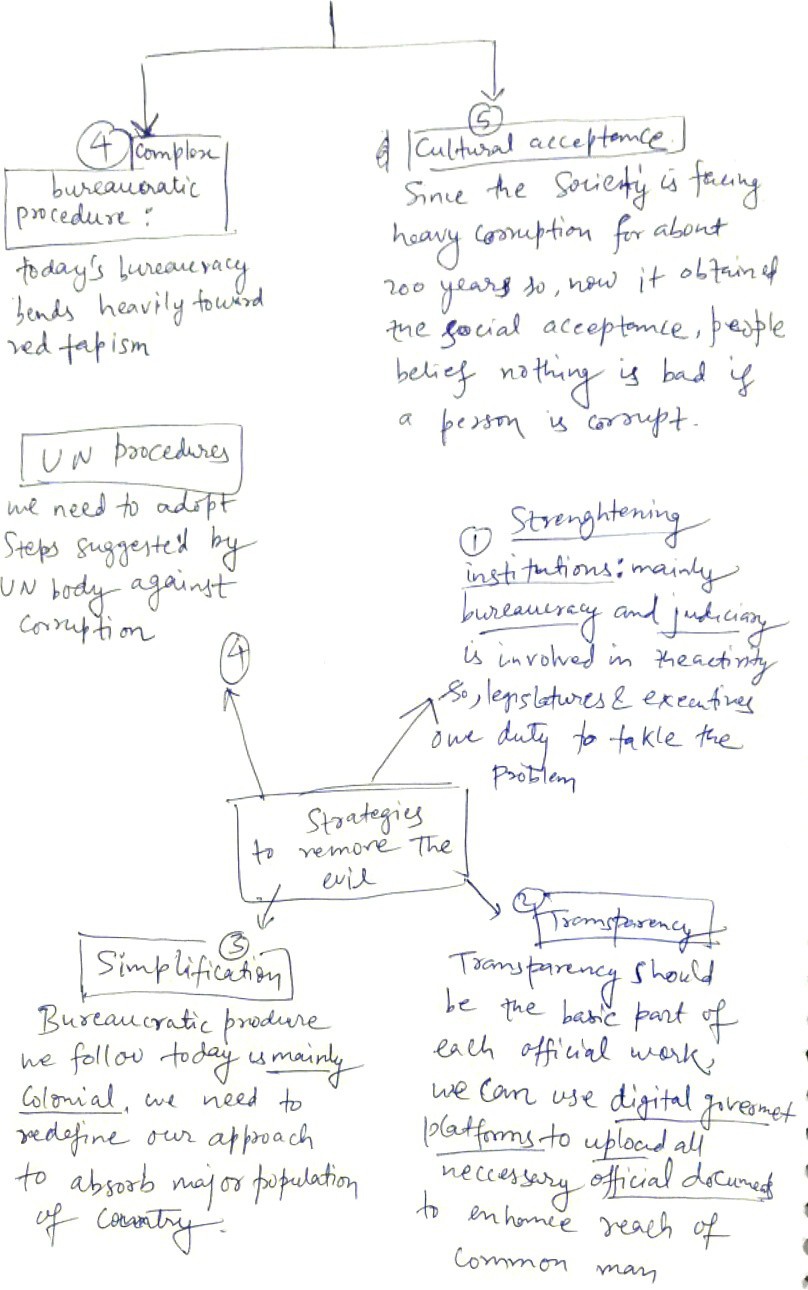 ④ Complex
bureaucratic
procedure :
today's bureaucracy
bends heavily toward
red tapism
⑤
Cultural acceptance
Since the Society is facing
heavy corruption for about
200 years so, now it obtained
the social acceptance, people
belief nothing is bad if
a person is corrupt.
UN procedures
we need to adopt
Steps suggested by
UN body against
Corruption
④
① Strenghtening
institutions: mainly
bureaucracy and judiciary
is involved in the activity
So, legislatures & executives
owe duty to takle the
problem
Strategies
to remove the
evil
③
Simplification
Bureaucratic produre
we follow today is mainly
Colonial, we need to
redefine our approach
to absorb major population
of country.
②
Transparency
Transparency should
be the basic part of
each official work,
we can use digital govermet
platforms to upload all
neccessary official documents
to enhance reach of
common man